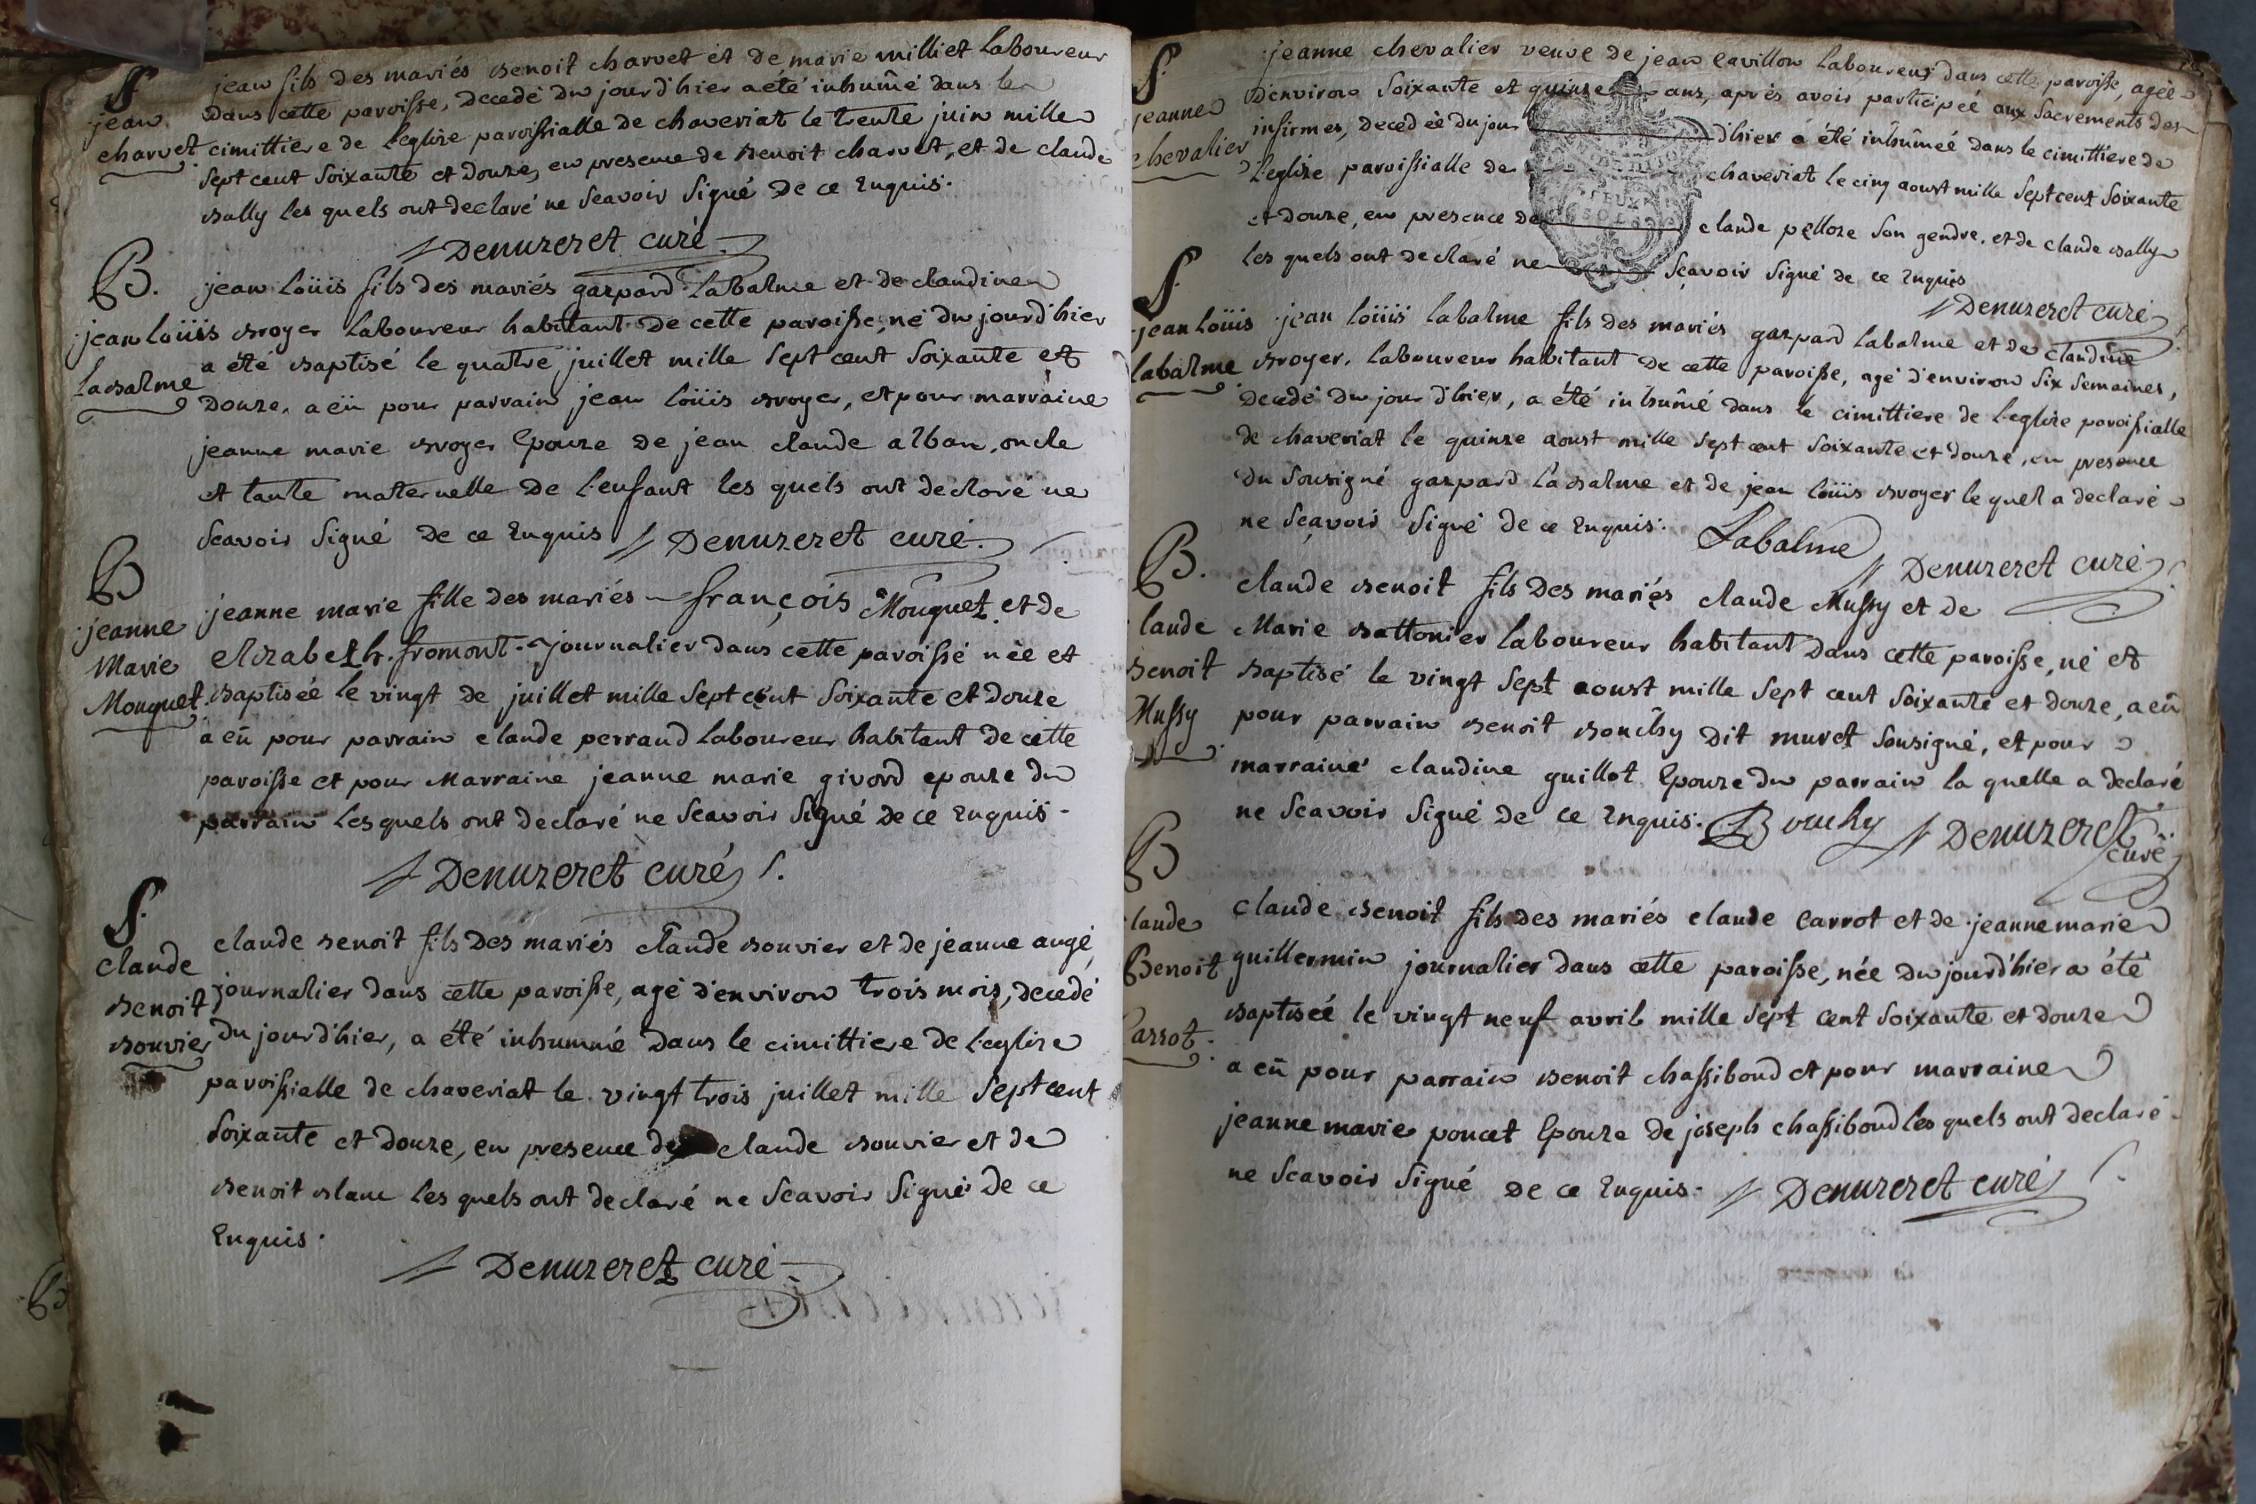 S.
jean
charvet
jean fils des mariés benoit charvet et de marie milliet Laboureur
dans cette paroisse, decedé du jour d'hier a été inhumé dans le
cimittiere de l'eglise paroissialle de chaveriat le trente juin mille
sept cent soixante et douze, en presence de benoit charvet, et de claude
bally les quels ont declaré ne scavoir signé de ce enquis.
Denuzeret curé
B.
jean loüis
labalme
jean loüis fils des mariés gaspard labalme et de claudine
broyer laboureur habitant de cette paroisse, né du jourd'hier
a été baptisé le quatre juillet mille sept cent soixante et
douze, a eü pour parrain jean loüis broyer, et pour marraine
jeanne marie broyer epouze de jean claude alban, oncle
et tante maternelle de l'enfant les quels ont declaré ne
scavoir signé de ce enquis Denuzeret curé.
B
jeanne
Marie
Mouquet
jeanne marie fille des mariés françois Mouquet et de
elizabeth fromont journalier dans cette paroisse née et
baptiséé le vingt de juillet mille sept cent soixante et douze
a eü pour parrain claude perraud laboureur habitant de cette
paroisse et pour Marraine jeanne marie givord epouze du
parrain les quels ont declaré ne scavoir signé de ce enquis -
Denuzeret curé
S.
claude
benoit
bouvier
claude benoit fils des mariés claude bouvier et de jeanne augé,
journalier dans cette paroisse, agé d'environ trois mois, decedé
du jourd'hier, a été inhummé dans le cimittiere de l'eglise
paroissialle de chaveriat le vingt trois juillet mille sept cent
soixante et douze, en presence de claude bouvier et de
benoit blanc les quels ont declaré ne scavoir signé de ce
enquis.
Denuzeret curé
S.
jeanne
chevalier
jeanne chevalier veuve de jean cavillon laboureur dans cette paroisse, agéé
d'environ soixante et quinze ans, aprés avoir participéé aux sacrements des
infirmes, decedéé du jour d'hier a été inhûméé dans le cimittiere de
l'eglise paroissialle de chaveriat le cinq aoust mille sept cent soixante
et douze, en presence de claude pelloze son gendre, et de claude bally
les quels ont declaré ne sçavoir signé de ce enquis
Denuzeret curé
S.
jean loüis
labalme
jean loüis labalme fils des mariés gaspard labalme et de claudine
broyer, laboureur habitant de cette paroisse, agé d'environ six semaines,
decedé du jour d'hier, a été inhûmé dans le cimittiere de l'eglise paroissialle
de chaveriat le quinze aoust mille sept cent soixante et douze, en presence
du sousigné gaspard labalme et de jean loüis broyer le quel a declaré
ne sçavoir signé de ce enquis. Labalme Denuzeret curé
B.
laude
benoit
Mussy
claude benoit fils des mariés claude Mussy et de
Marie battonier laboureur habitant dans cette paroisse, né et
baptisé le vingt sept aoust mille sept cent soixante et douze, a eü
pour parrain benoit bouchy dit muret sousigné, et pour
marraine claudine guillot epouze du parrain la quelle a declaré
ne scavoir signé de ce enquis. Bouchy Denuzeret
curé
B
laude
Benoit
Carrot
claude benoit fils des mariés claude Carrot et de jeanne marie
guillermin journalier dans cette paroisse, née du jourd'hier a été
baptiséé le vingt neuf avril mille sept cent soixante et douze
a eü pour parrain benoit chassiboud et pour marraine
jeanne marie poncet epouze de joseph chassiboud les quels ont declaré
ne scavoir signé de ce enquis. Denuzeret curé